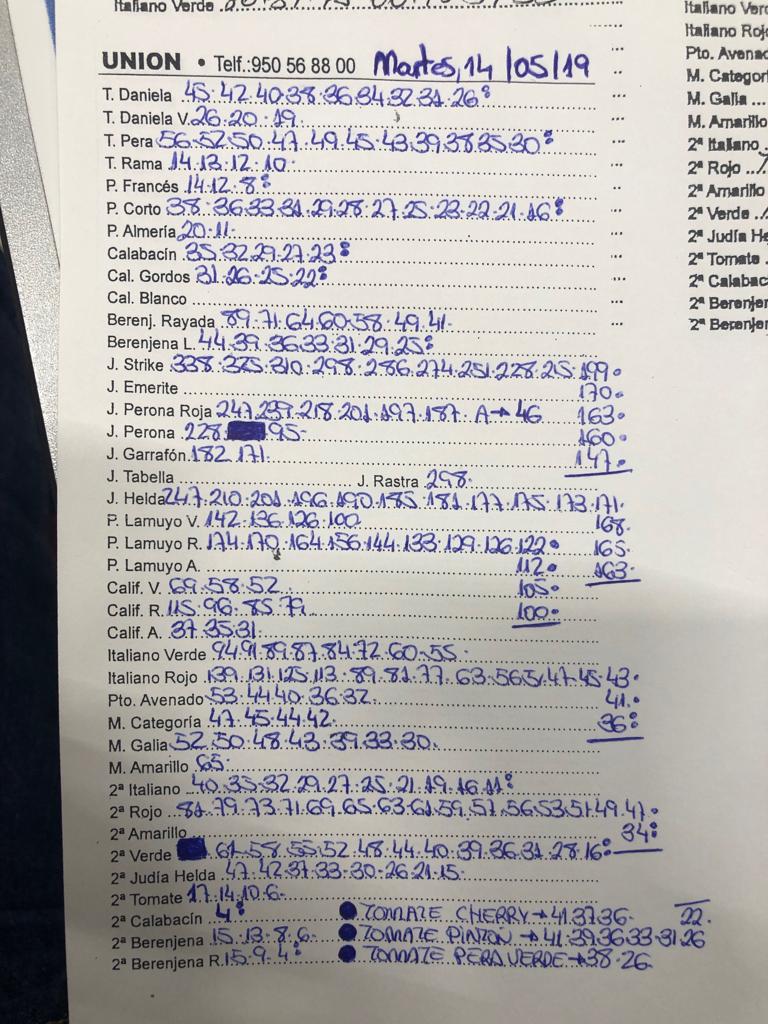 Italiano Verde
UNION • Telf.:950 56 88 00 Martes, 14/05/19
T. Daniela 45·42·40·38·36·34·32·31·26:
T. Daniela V. 26·20·19·
T. Pera 56·52·50·47·49·45·43·39·38·35·30:
T. Rama 14·13·12·10·
P. Francés 14·12·8:
P. Corto 38·36·33·31·29·28·27·25·23·22·21·16:
P. Almería 20·11·
Calabacín 35·32·29·27·23:
Cal. Gordos 31·26·25·22:
Cal. Blanco
Berenj. Rayada 89·71·64·60·58·49·41·
Berenjena L. 44·39·36·33·31·29·25:
J. Strike 338·325·310·298·286·274·251·228·215·199·
J. Emerite 170·
J. Perona Roja 247·237·218·201·197·187· A→46 163·
J. Perona 228 95· 160·
J. Garrafón 182·171· 147·
J. Tabella J. Rastra 298·
J. Helda 247·210·201·196·190·185·181·177·175·173·171·
P. Lamuyo V. 142·136·126·100· 168·
P. Lamuyo R. 174·170·164·156·144·133·129·126·122· 165·
P. Lamuyo A. 112· 163·
Calif. V. 69·58·52 105·
Calif. R. 115·96·85·79· 100·
Calif. A. 37·35·31·
Italiano Verde 94·91·89·87·84·72·60·55·
Italiano Rojo 139·131·125·113·89·81·77·63·56·51·47·45·43·
Pto. Avenado 53·44·40·36·32· 41·
M. Categoría 47·45·44·42· 36:
M. Galia 52·50·48·43·39·33·30·
M. Amarillo 65·
2ª Italiano 40·35·32·29·27·25·21·19·16·11:
2ª Rojo 81·79·73·71·69·65·63·61·59·57·56·53·51·49·47·
2ª Amarillo 34:
2ª Verde 61·58·55·52·48·44·40·39·36·31·28·16:
2ª Judía Helda 47·42·37·33·30·26·21·15·
2ª Tomate 17·14·10·6·
2ª Calabacín 4: ● TOMATE CHERRY→41·37·36· 22·
2ª Berenjena 15·13·8·6· ● TOMATE PINTON→41·39·36·33·31·26
2ª Berenjena R. 15·9·4: ● TOMATE PERA VERDE→38·26·
Italiano Verd
Italiano Rojo
Pto. Avenad
M. Categor
M. Galia
M. Amarillo
2ª Italiano
2ª Rojo
2ª Amarillo
2ª Verde
2ª Judía He
2ª Tomate
2ª Calabac
2ª Berenjer
2ª Berenjer